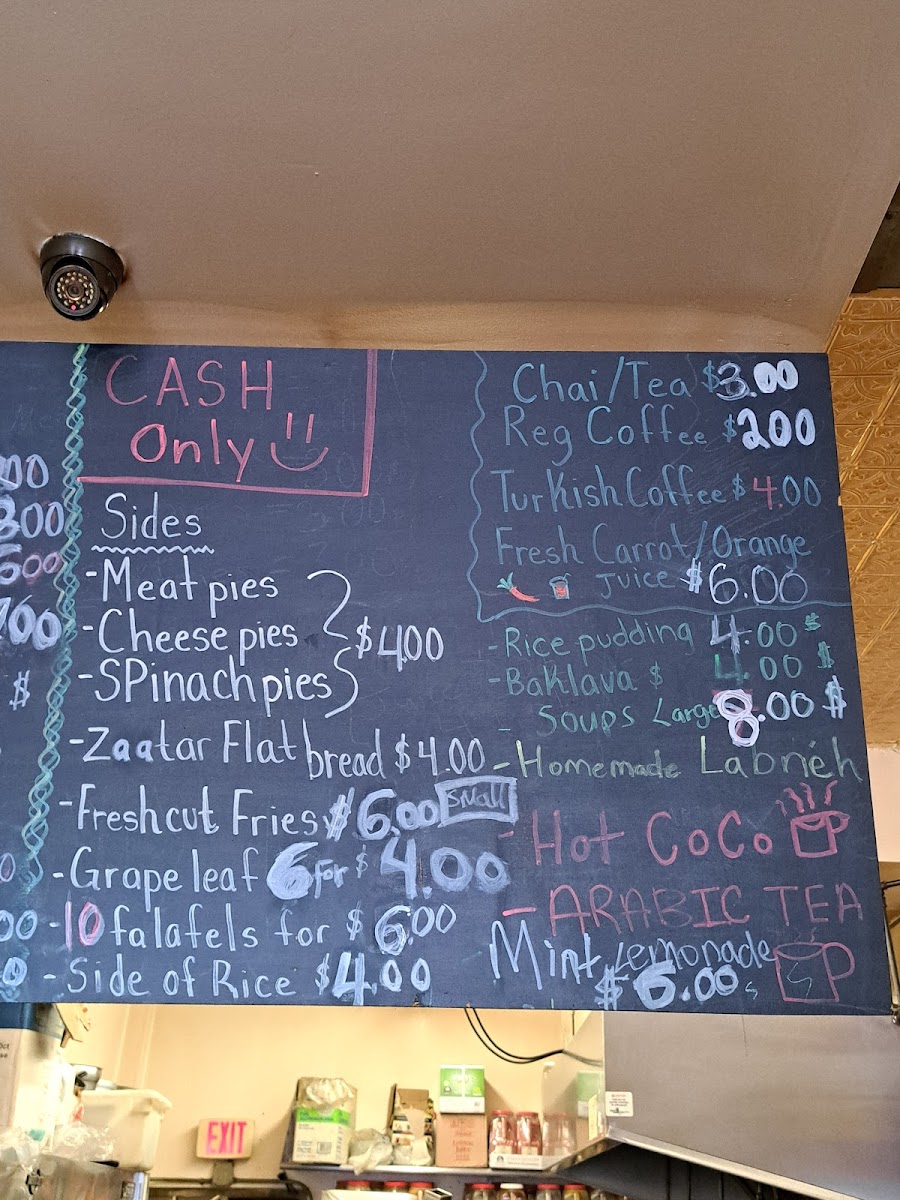 CASH
Only
Sides
-Meat pies
-Cheese pies
$4.00
-SPinach pies
-Zaatar Flat bread $4.00
-Fresh cut Fries $6.00 small
-Grape leaf 6 for $4.00
-10 falafels for $6.00
-Side of Rice $4.00
Chai/Tea $3.00
Reg Coffee $2.00
Turkish Coffee $4.00
Fresh Carrot/Orange
Juice $6.00
-Rice pudding 4.00$
-Baklava $ 4.00 $
- Soups Large 8.00$
-Homemade Labneh
-Hot CoCo
-ARABIC TEA
Mint Lemonade
$6.00
EXIT